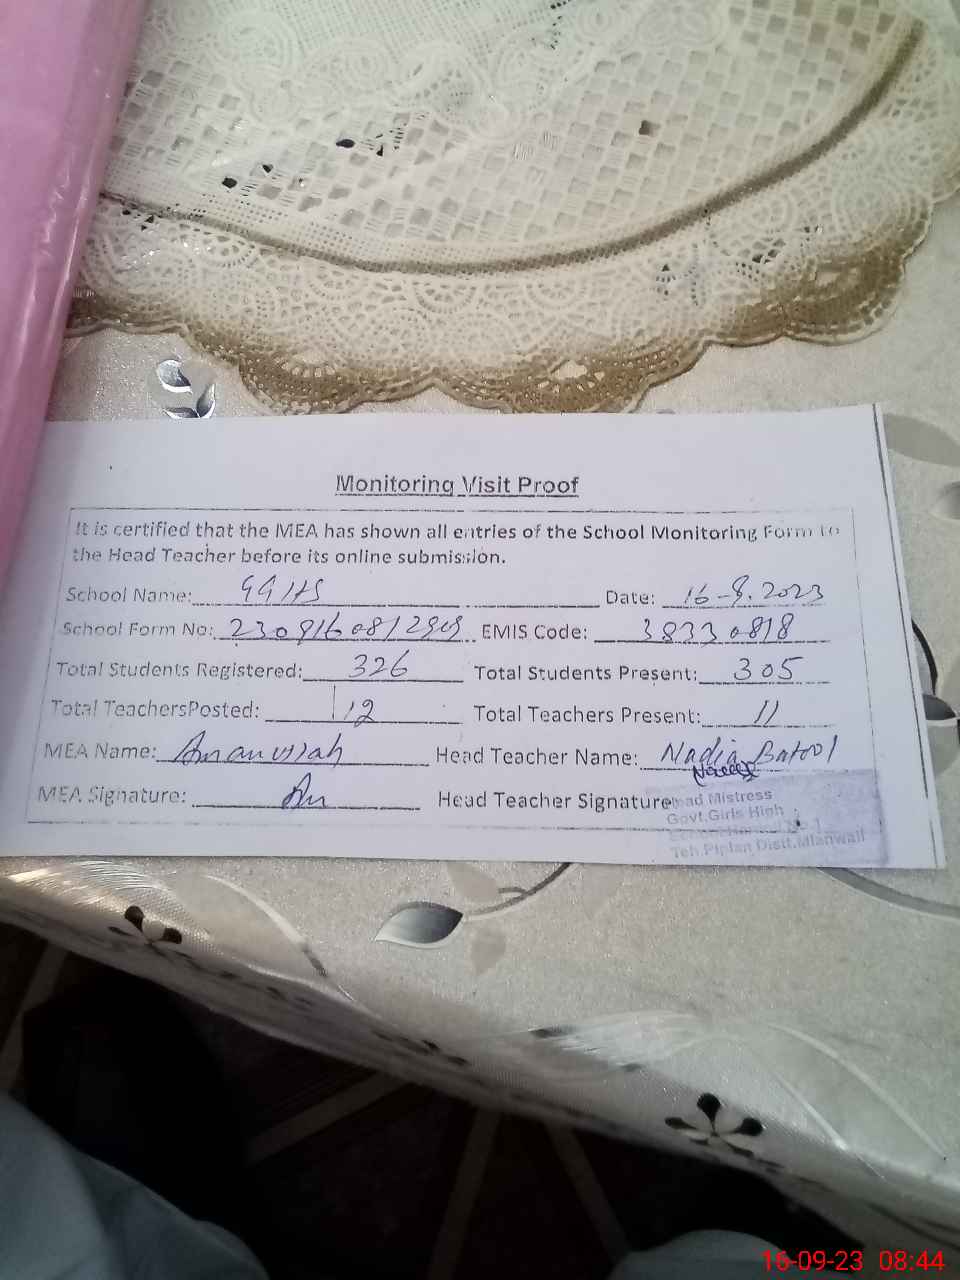 Monitoring Visit Proof
It is certified that the MEA has shown all entries of the School Monitoring Form to
the Head Teacher before its online submission.
School Name: GGHS Date: 16-9.2023
School Form No: EMIS Code: 38330818
Total Students Registered: 326 Total Students Present: 305
Total TeachersPosted: 12 Total Teachers Present: 11
MEA Name: Amanullah Head Teacher Name: Nadia Batool
MEA Signature: Head Teacher Signature
Head Mistress
Govt.Girls High
No.1
Teh.Piplan Distt.Mianwali
16-09-23 08:44